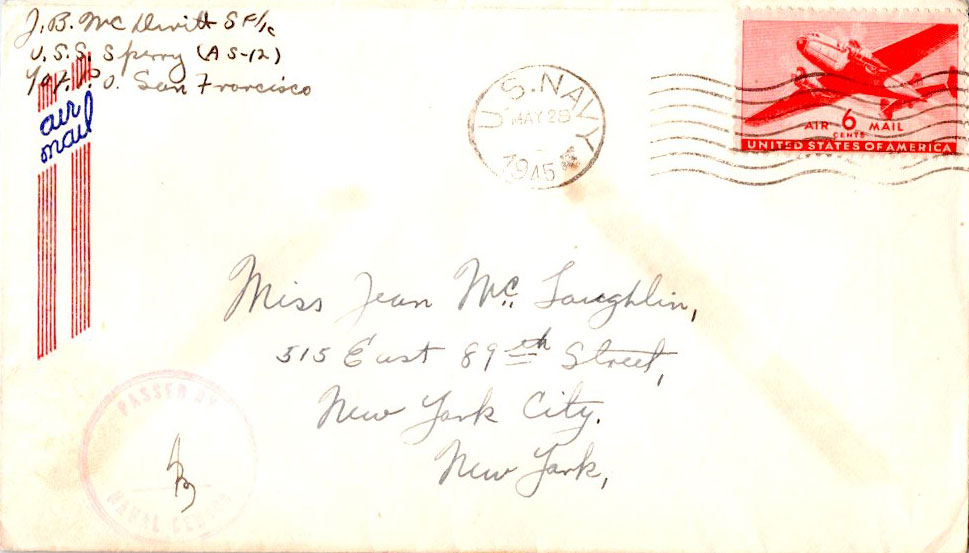 J. B. Mc Devitt SF/1c
U.S.S. Sperry (AS-12)
San Francisco
air
mail
U.S. NAVY
MAY 28
1945
AIR 6 MAIL
CENTS
UNITED STATES OF AMERICA
Miss Jean Mc. Laughlin,
515 East 89th Street,
New York City.
New York,
PASSED BY
NAVAL CENSOR